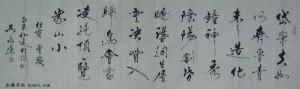 岱宗夫如
何齊魯青
未了造化
鍾神秀
陰陽割昏
曉蕩胸生層
雲決眥入
歸鳥會當
凌絕頂一覽
衆山小
杜甫 望嶽